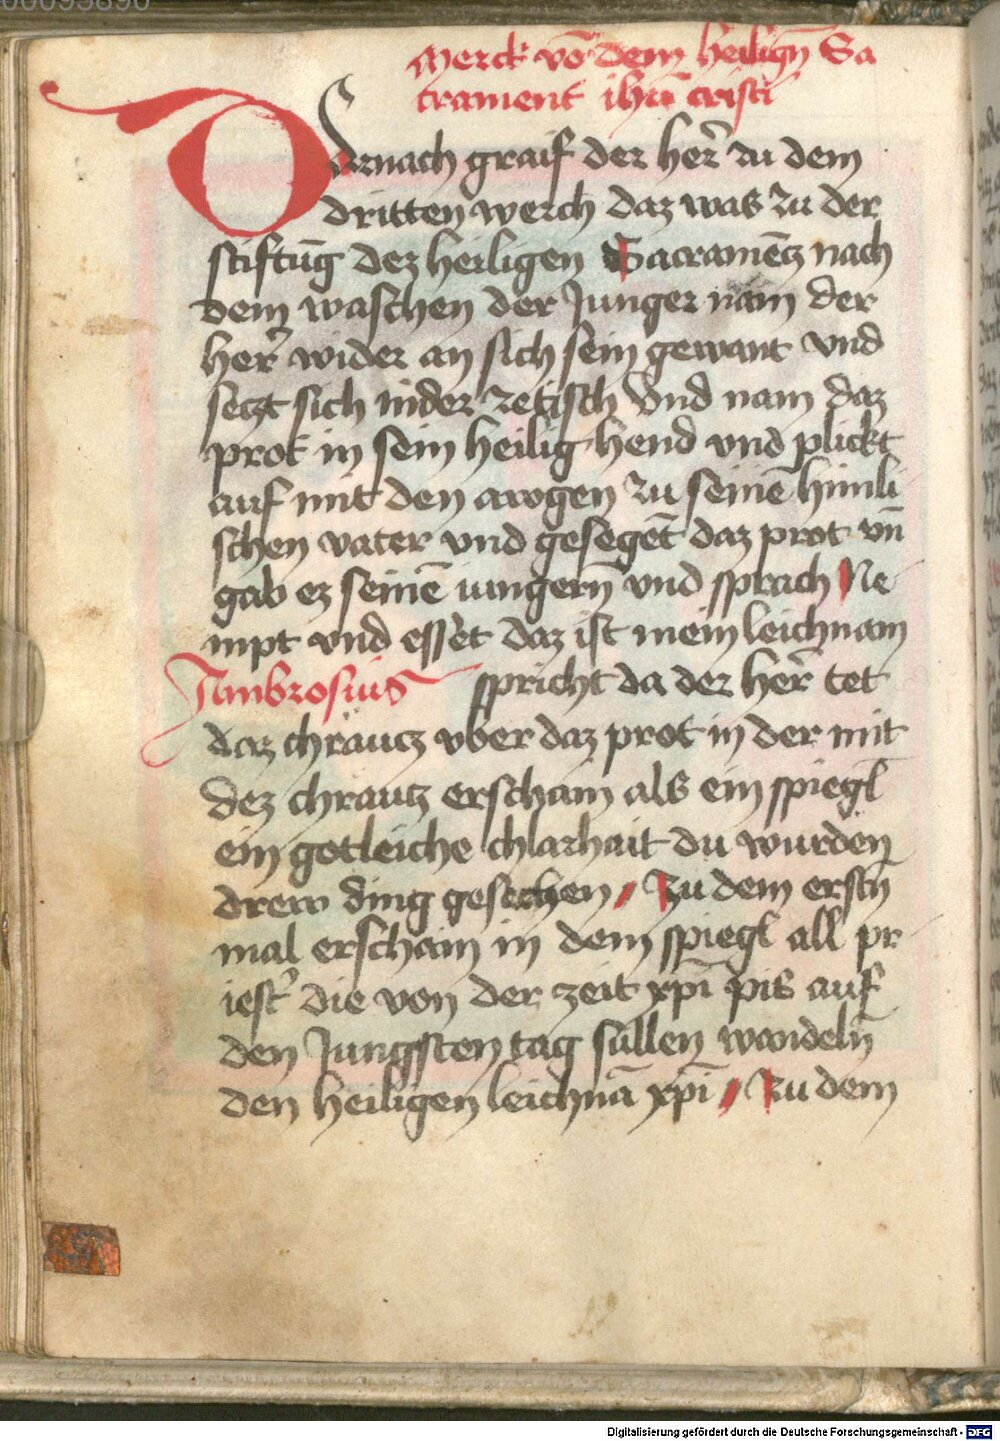 00095890
Merck võ dem heiligñ Sa
crament ihũ cristi
Darnach graif der her̄ zu dem
dritten werch daz was zu der
stiftũg dez heiligen Sacramẽtz nach
dem waschen der Junger nam der
her̄ wider an sich sein gewant vnd
seczt sich nider ze tisch Vnd nam daz
prot in sein heilig hend vnd plickt
auf mit den awgen zu seinẽ himli
schen vater vnd gesegẽt daz prot vñ
gab ez seinẽ iungerñ vnd sprach Ne
mpt vnd esset daz ist mein leichnam
Ambrosius spricht da der her̄ tet
daz chräucz vber daz prot in der mit
dez chräutz erscham als ein spiegl
ein gotleiche chlarhait du wurden
drew ding gesechen Zu dem erstñ
mal erscham in dem spiegl all pr
iest̾ die von der zeit xp̄i pis auf
den Jungsten tag sullen wandelñ
den heiligen leichnã xp̄i Zu dem
Digitalisierung gefördert durch die Deutsche Forschungsgemeinschaft - DFG